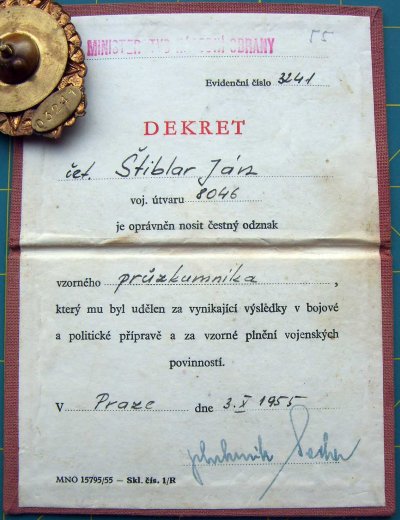 MINISTERSTVO NÁRODNÍ OBRANY
55
Evidenční číslo 3241
03241
DEKRET
čet. Štiblar Ján
voj. útvaru 8046
je oprávněn nosit čestný odznak
vzorného průzkumníka ,
který mu byl udělen za vynikající výsledky v bojové
a politické přípravě a za vzorné plnění vojenských
povinností.
V Praze dne 3. X 1955
plukovník
MNO 15795/55 — Skl. čís. 1/R